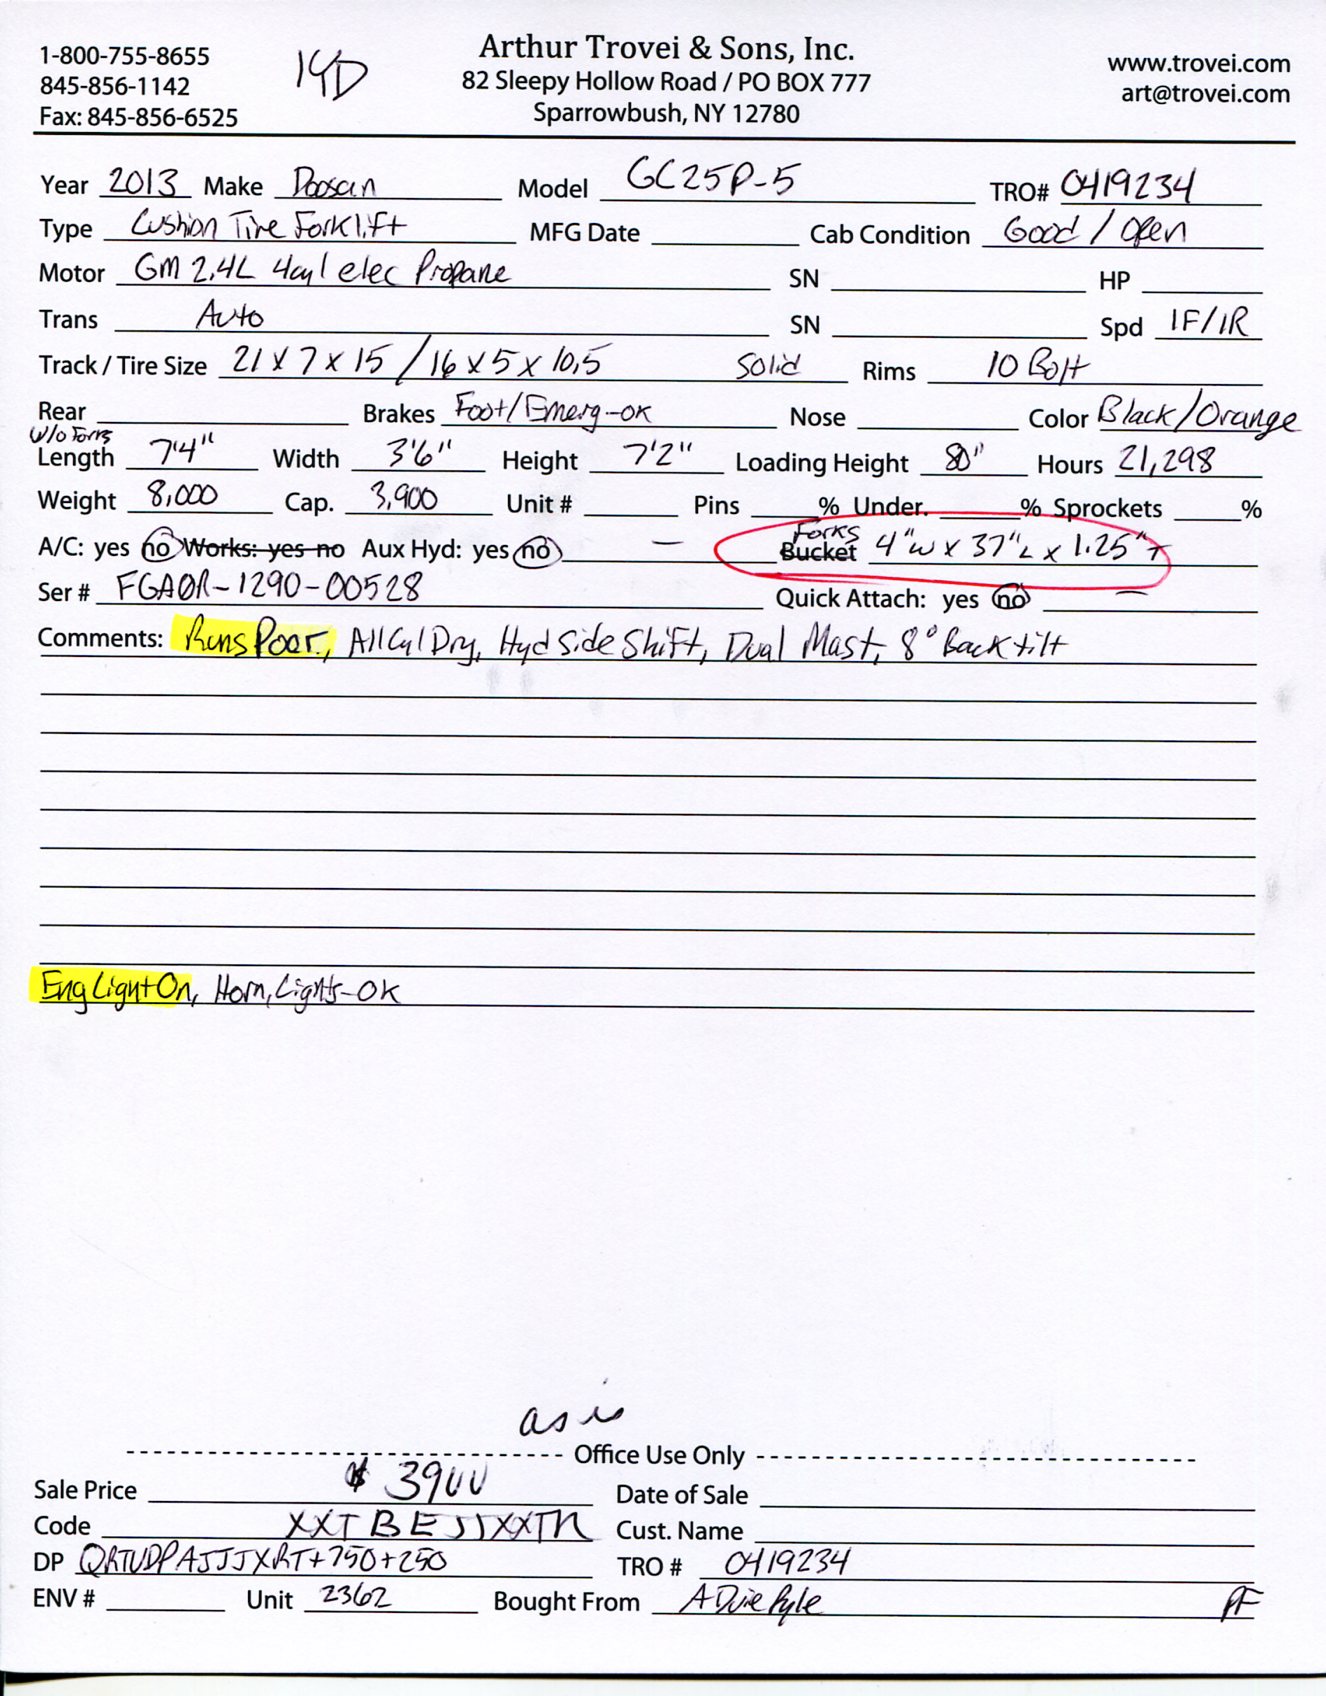 1-800-755-8655
845-856-1142
Fax: 845-856-6525
14D
Arthur Trovei & Sons, Inc.
82 Sleepy Hollow Road / PO BOX 777
Sparrowbush, NY 12780
www.trovei.com
art@trovei.com
Year 2013 Make Doosan Model GC25P-5 TRO# 0419234
Type Cushion Tire Forklift MFG Date Cab Condition Good / Open
Motor GM 2.4L 4cyl elec Propane SN HP
Trans Auto SN Spd 1F/1R
Track / Tire Size 21 x 7 x 15 / 16 x 5 x 10.5 Solid Rims 10 Bolt
Rear Brakes Foot/Emerg-ok Nose Color Black/Orange
w/o Forks
Length 7'4" Width 3'6" Height 7'2" Loading Height 80" Hours 21,298
Weight 8,000 Cap. 3,900 Unit # Pins % Under. % Sprockets %
Forks
A/C: yes no Works: yes no Aux Hyd: yes no — Bucket 4"W x 37"L x 1.25"T
Ser # FGA0R-1290-00528 Quick Attach: yes no —
Comments: Runs Poor, All Cyl Dry, Hyd Side Shift, Dual Mast, 8° Back tilt
Eng Light On, Horn, Lights-OK
as is
Office Use Only
Sale Price $ 3900 Date of Sale
Code Cust. Name
DP TRO # 0419234
ENV # Unit 2362 Bought From A Duie Pyle PF